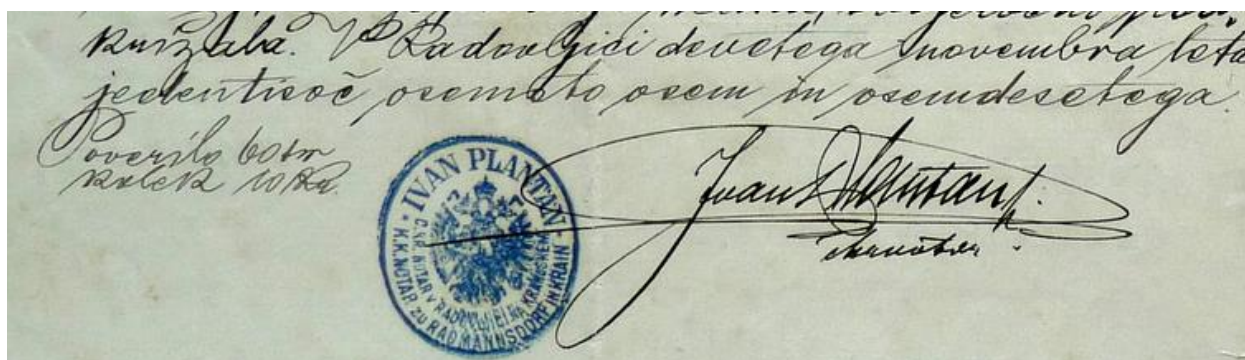 kuržaba. V Radovljici devetega novembra leta
jedentisoč osemsto osem in osemdesetega.
Poverilo 60 kr
kolek 10 kr.
IVAN PLANTAN
C. KR. NOTAR V RADOVLJICI NA KRANJSKEM
K. K. NOTAR ZU RADMANNSDORF IN KRAIN
Ivan Plantan